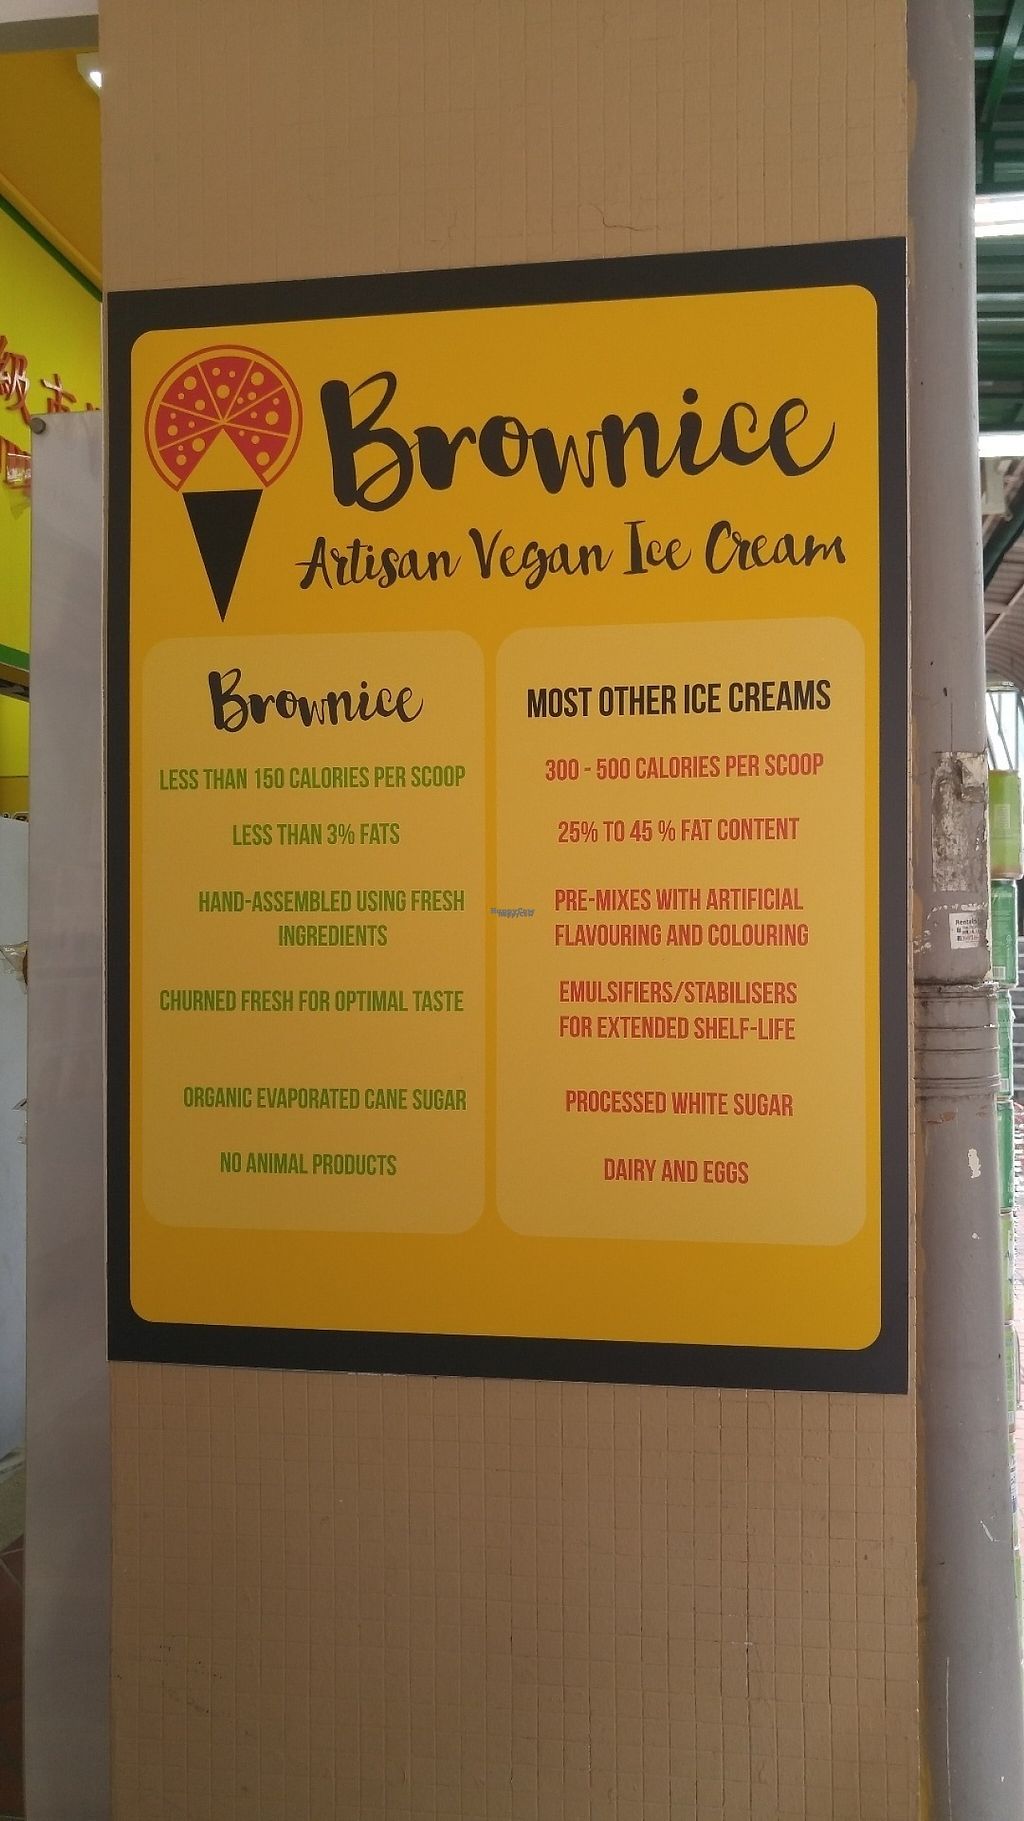 Brownice
Artisan Vegan Ice Cream
Brownice
LESS THAN 150 CALORIES PER SCOOP
LESS THAN 3% FATS
HAND-ASSEMBLED USING FRESH
INGREDIENTS
CHURNED FRESH FOR OPTIMAL TASTE
ORGANIC EVAPORATED CANE SUGAR
NO ANIMAL PRODUCTS
MOST OTHER ICE CREAMS
300 - 500 CALORIES PER SCOOP
25% TO 45 % FAT CONTENT
PRE-MIXES WITH ARTIFICIAL
FLAVOURING AND COLOURING
EMULSIFIERS/STABILISERS
FOR EXTENDED SHELF-LIFE
PROCESSED WHITE SUGAR
DAIRY AND EGGS
級